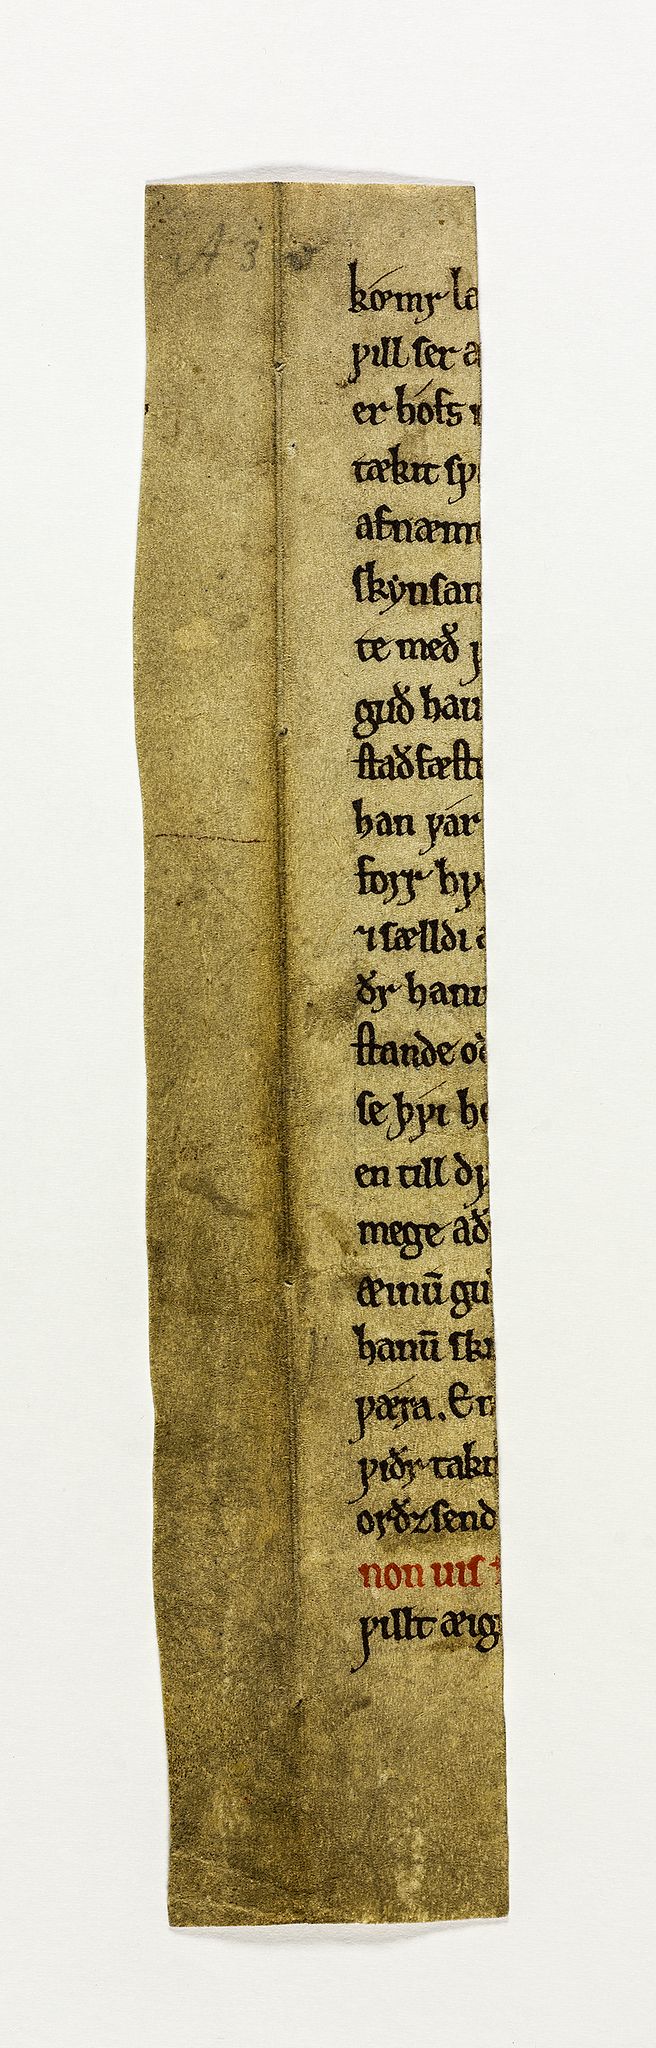 A 3
kœmr la
ꝩill ser æ
er hófs
tækit sp
afnæm
skẏnsam
te með ꝩ
guð hau
staðfæst
han ꝩár
forꝛ hꝩ
⁊ sælldi a
ðꝛ hanu
stande oð
se þꝩi h
en till dꝩ
mege að
æinū gu
hanū sk
ꝩæra. En
ꝩiðꝛ tak
orð ⁊ send
non uis
ꝩillt æig